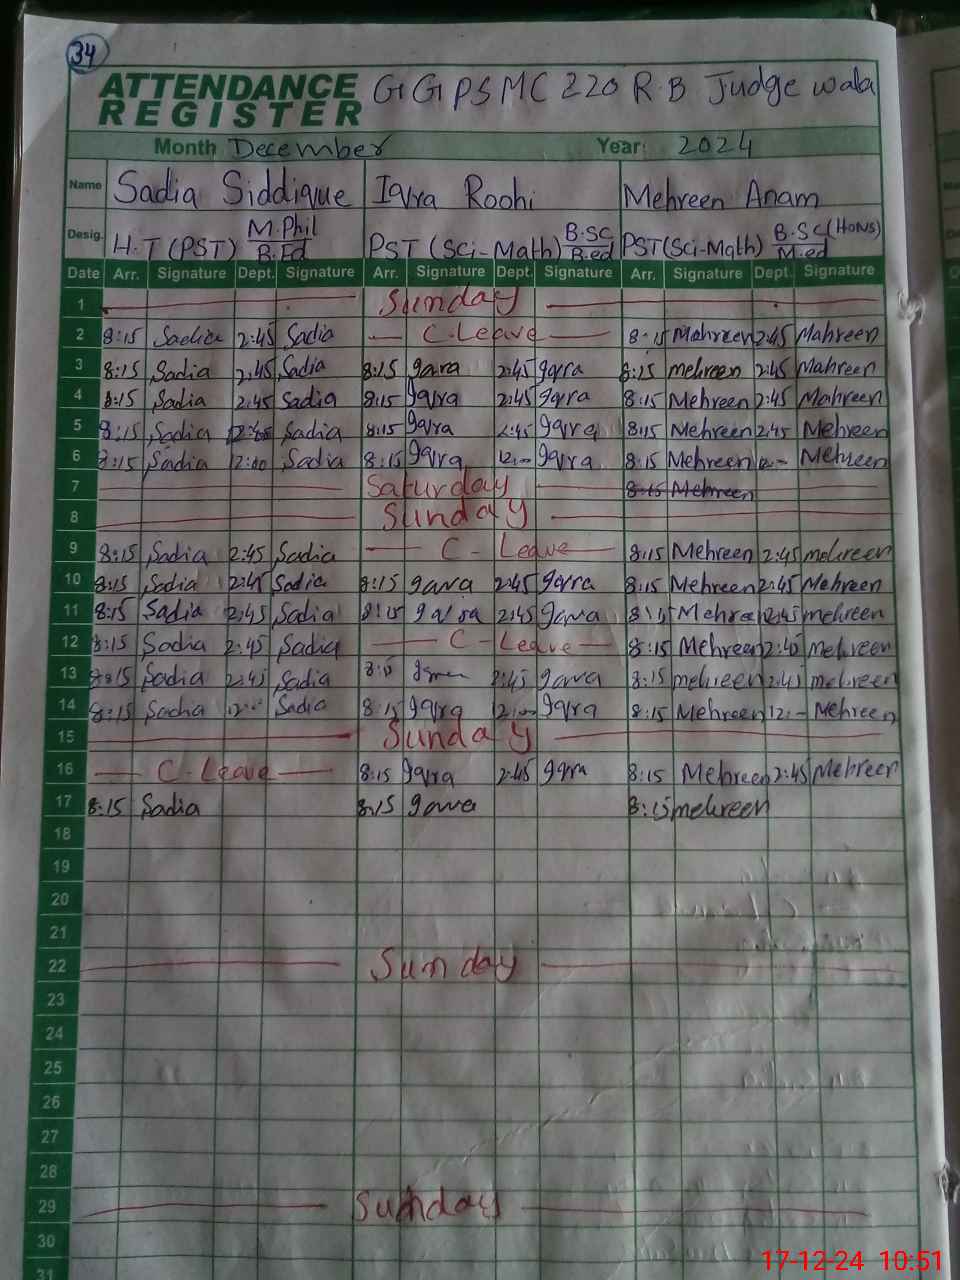 34
ATTENDANCE REGISTER GGPS MC 220 R.B Judge wala
Month December Year: 2024
Name Sadia Siddique Iqra Roohi Mehreen Anam
Desig. H.T (PST) M.Phil B.Ed PST (Sci-Math) B.SC B.ed PST (Sci-Math) B.SC (HONS) M.ed
Date Arr. Signature Dept. Signature Arr. Signature Dept. Signature Arr. Signature Dept. Signature
1 Sunday
2 8:15 Sadia 2:45 Sadia C.Leave 8:15 Mehreen 2:45 Mahreen
3 8:15 Sadia 2:45 Sadia 8:15 Iqra 2:45 Iqra 8:15 mehreen 2:45 Mahreen
4 8:15 Sadia 2:45 Sadia 8:15 Iqra 2:45 Iqra 8:15 Mehreen 2:45 Mahreen
5 8:15 Sadia Sadia 8:15 Iqra 2:45 Iqra 8:15 Mehreen 2:45 Mehreen
6 8:15 Sadia 12:00 Sadia 8:15 Iqra 12:- Iqra 8:15 Mehreen 12:- Mehreen
7 Saturday 8:15 Mehreen
8 Sunday
9 8:15 Sadia 2:45 Sadia C-Leave 8:15 Mehreen 2:45 mehreen
10 8:15 Sadia 2:45 Sadia 8:15 Iqra 2:45 Iqra 8:15 Mehreen 2:45 Mehreen
11 8:15 Sadia 2:45 Sadia 8:15 Iqra 2:45 Iqra 8:15 Mehreen 2:45 mehreen
12 8:15 Sadia 2:45 Sadia C-Leave 8:15 Mehreen 2:45 mehreen
13 8:15 Sadia 2:45 Sadia 8:15 2:45 Iqra 8:15 mehreen 2:45 mehreen
14 8:15 Sadia Sadia 8:15 Iqra 12:- Iqra 8:15 Mehreen 12:- Mehreen
15 Sunday
16 C-Leave 8:15 Iqra 2:45 Iqra 8:15 Mehreen 2:45 Mehreen
17 8:15 Sadia 8:15 Iqra 8:15 mehreen
18
19
20
21
22 Sunday
23
24
25
26
27
28
29 Sunday
30
31
17-12-24 10:51